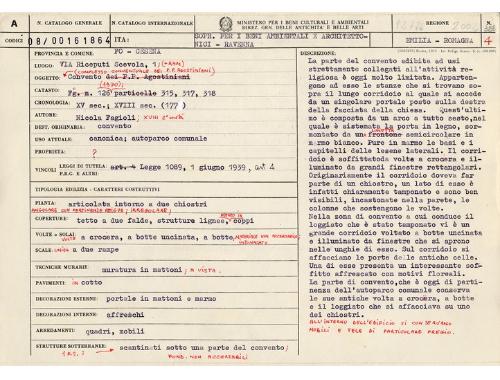 A
N. CATALOGO GENERALE
N. CATALOGO INTERNAZIONALE
MINISTERO PER I BENI CULTURALI E AMBIENTALI
DIREZ. GEN. DELLE ANTICHITÀ E BELLE ARTI
REGIONE
N.
CODICI
08/00161864
ITA:
SOPR. PER I BENI AMBIENTALI E ARCHITETTO-
NICI - RAVENNA
EMILIA - ROMAGNA
4
PROVINCIA E COMUNE: FO - CESENA
LUOGO: VIA Riceputi Scevola, 1;
(COMPLESSO CONVENTUALE DEI P.P. AGOSTINIANI)
OGGETTO: Convento dei P.P. Agostiniani
CATASTO: Fg. n. 126 particelle 315, 317, 318
CRONOLOGIA: XV sec.; XVIII sec. (177 )
AUTORE: Nicola Fagioli; XVIII 2° metà
DEST. ORIGINARIA: convento
USO ATTUALE: canonica; autoparco comunale
PROPRIETÀ: ?
VINCOLI
LEGGI DI TUTELA: art. 4 Legge 1089, 1 giugno 1939, art 4
P.R.G. E ALTRI:
TIPOLOGIA EDILIZIA - CARATTERI COSTRUTTIVI
PIANTA: articolata intorno a due chiostri
COPERTURE: tetto a due falde, strutture lignee, coppi
VOLTE o SOLAI: a crocera, a botte uncinata, a botte
SCALE: a due rampe
TECNICHE MURARIE: muratura in mattoni; A VISTA.
PAVIMENTI: IN cotto
DECORAZIONI ESTERNE: portale in mattoni e marmo
DECORAZIONI INTERNE: affreschi
ARREDAMENTI: quadri, mobili
STRUTTURE SOTTERRANEE: scantinati sotto una parte del convento;
FOND. NON ACCERTABILI
DESCRIZIONE:
La parte del convento adibita ad usi
strettamente collegati all'attività re-
ligiosa è oggi molto limitata. Apparten-
gono ad esso le stanze che si trovano so-
pra il lungo corridoio al quale si accede
da un singolare portale posto sulla destra
della facciata della chiesa. Quest'ulti-
mo è composto da un arco a tutto sesto, nel
quale è sistemata la porta in legno, sor-
montato da un frontone semicircolare in
marmo bianco. Pure in marmo le basi e i
capitelli delle lesene laterali. Il corri-
doio è soffittato da volte a crocera e il-
luminato da grandi finestre rettangolari.
Originariamente il corridoio doveva far
parte di un chiostro, un lato di esso è
infatti chiaramente tamponato e sono ben
visibili, incastonate nella parete, le
colonne che sostengono le volte.
Nella zona di convento a cui conduce il
loggiato che è stato tamponato vi è un
grande corridoio voltato a botte uncinata
e illuminato da finestre che si aprono
nelle unghie di esso. Sul corridoio si
affacciano le porte delle antiche celle.
Una di esse presenta un interessante sof-
fitto affrescato con motivi floreali.
La parte di convento, che è oggi di parti-
nenza dell'autoparco comunale conserva
le sue antiche volte a crocera, a botte
e il loggiato che si affacciava su uno
dei chiostri.
ALL'INTERNO DELL'EDIFICIO SI CONSERVANO
MOBILI E TELE DI PARTICOLARE PREGIO.